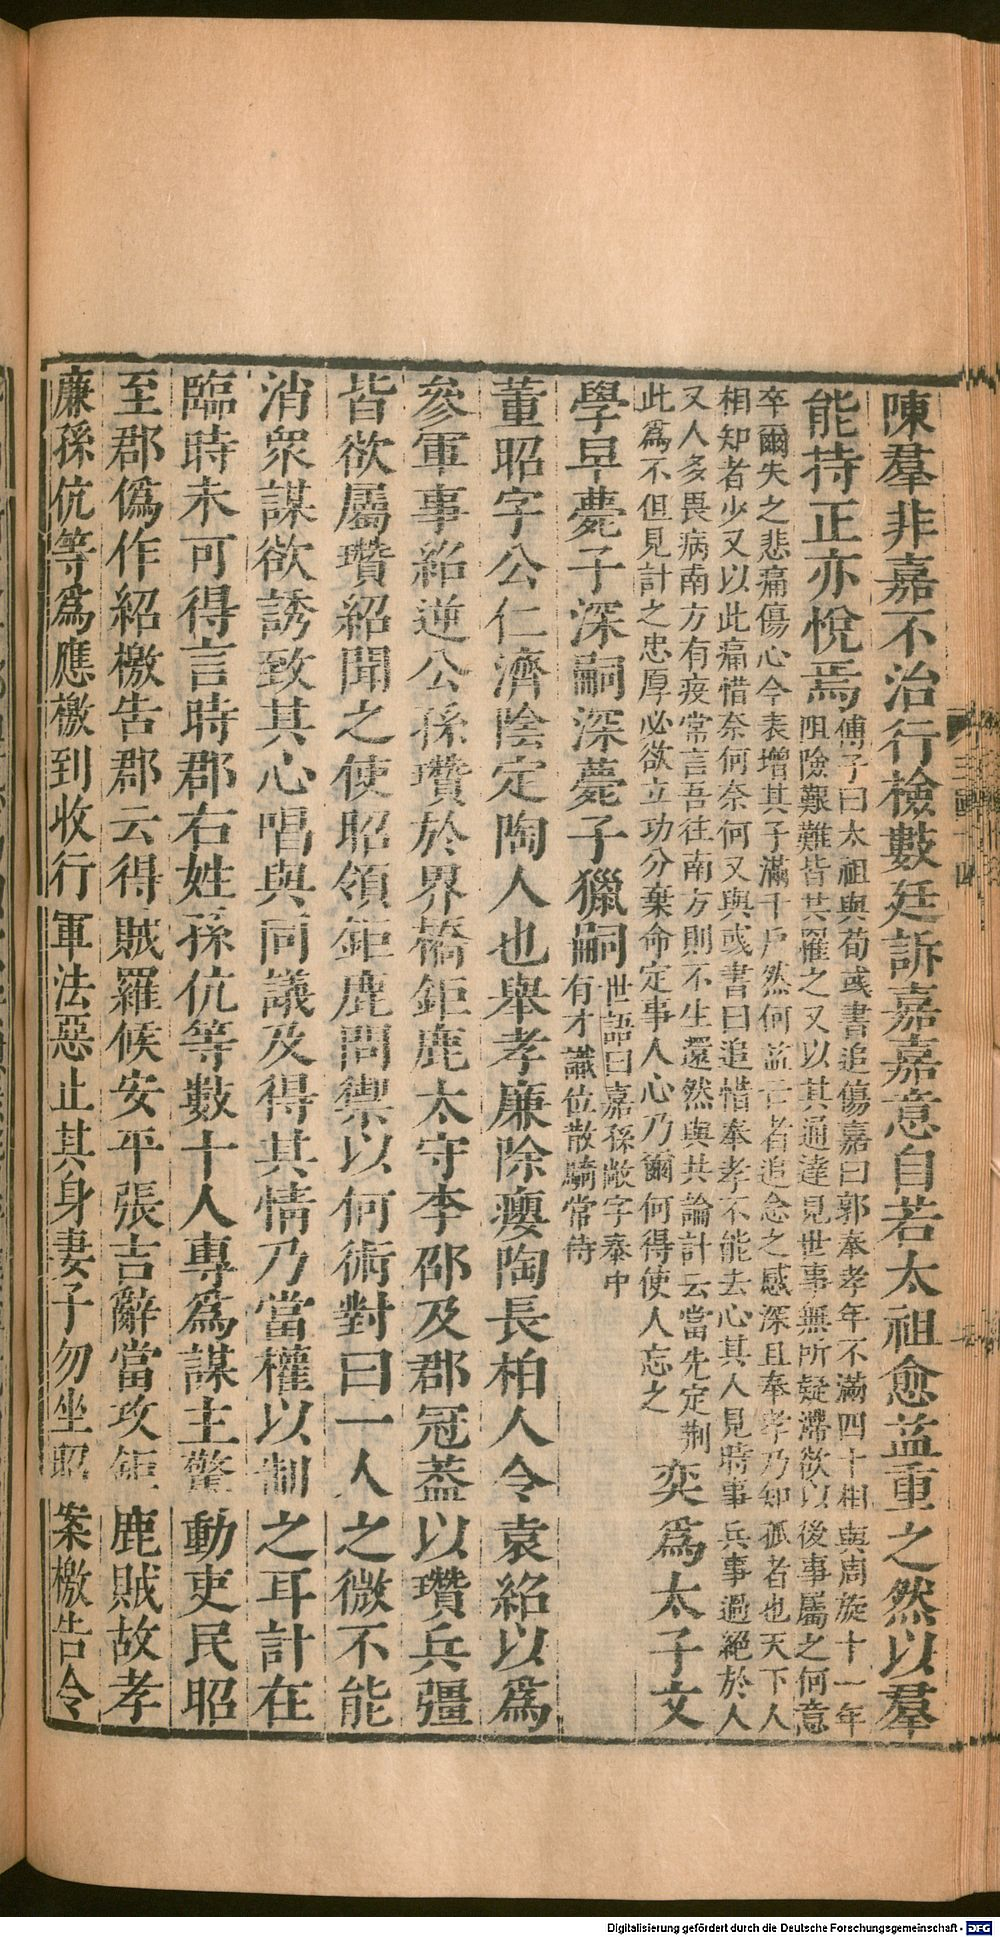 陳羣非嘉不治行檢數廷訴嘉嘉意自若太祖愈益重之然以羣
能持正亦悅焉
傅子曰太祖與荀彧書追傷嘉曰郭奉孝年不滿四十相與周旋十一年
阻險艱難皆共罹之又以其通達見世事無所疑滯欲以後事屬之何意
卒爾失之悲痛傷心今表增其子滿千戶然何益亡者追念之感深且奉孝乃知孤者也天下人
相知者少又以此痛惜奈何奈何又與彧書曰追惜奉孝不能去心其人見時事兵事過絕於人
又人多畏病南方有疫常言吾往南方則不生還然與共論計云當先定荆
此爲不但見計之忠厚必欲立功分棄命定事人心乃爾何得使人忘之
奕爲太子文
學早薨子深嗣深薨子獵嗣
世語曰嘉孫敞字泰中
有才識位散騎常侍
董昭字公仁濟陰定陶人也舉孝廉除癭陶長柏人令袁紹以爲
參軍事紹逆公孫瓚於界橋鉅鹿太守李邵及郡冠蓋以瓚兵彊
皆欲屬瓚紹聞之使昭領鉅鹿問禦以何術對曰一人之微不能
消衆謀欲誘致其心唱與同議及得其情乃當權以制之耳計在
臨時未可得言時郡右姓孫伉等數十人專爲謀主驚動吏民昭
至郡僞作紹檄告郡云得賊羅候安平張吉辭當攻鉅鹿賊故孝
廉孫伉等爲應檄到收行軍法惡止其身妻子勿坐昭案檄告令
Digitalisierung gefördert durch die Deutsche Forschungsgemeinschaft - DFG